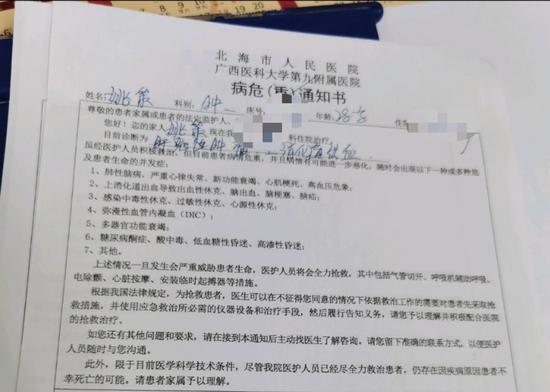 北海市人民医院
广西医科大学第九附属医院
病危（重）通知书
姓名 科别： 床号 年龄
尊敬的患者家属或患者的法定监护人：
您好！您的家人 现在我 科住院治疗，
目前诊断为
虽经医护人员积极救治，但目前患者病情危重，并且病情有可能进一步恶化，随时会出现以下一种或多种危
及患者生命的并发症：
1、肺性脑病，严重心律失常、心功能衰竭、心肌梗死、高血压危象；
2、上消化道出血导致出血性休克、脑出血、脑梗塞、脑疝；
3、感染中毒性休克、过敏性休克、心源性休克；
4、弥漫性血管内凝血（DIC）；
5、多器官功能衰竭；
6、糖尿病酮症、酸中毒、低血糖性昏迷、高渗性昏迷；
7、其他。
上述情况一旦发生会严重威胁患者生命，医护人员将会全力抢救，其中包括气管切开、呼吸机辅助呼吸、
电除颤、心脏按摩、安装临时起搏器等措施。
根据我国法律规定，为抢救患者，医生可以在不征得您同意的情况下依据救治工作的需要对患者先采取抢
救措施，并使用应急救治所必需的仪器设备和治疗手段，然后履行告知义务，请您予以理解并积极配合医院
的抢救治疗。
如您还有其他问题和要求，请在接到本通知后主动找医生了解咨询。请您留下准确的联系方式，以便医护
人员随时与您沟通。
此外，限于目前医学科学技术条件，尽管我院医护人员已经尽全力救治患者，仍存在因疾病原因患者不
幸死亡的可能，请患者家属予以理解。